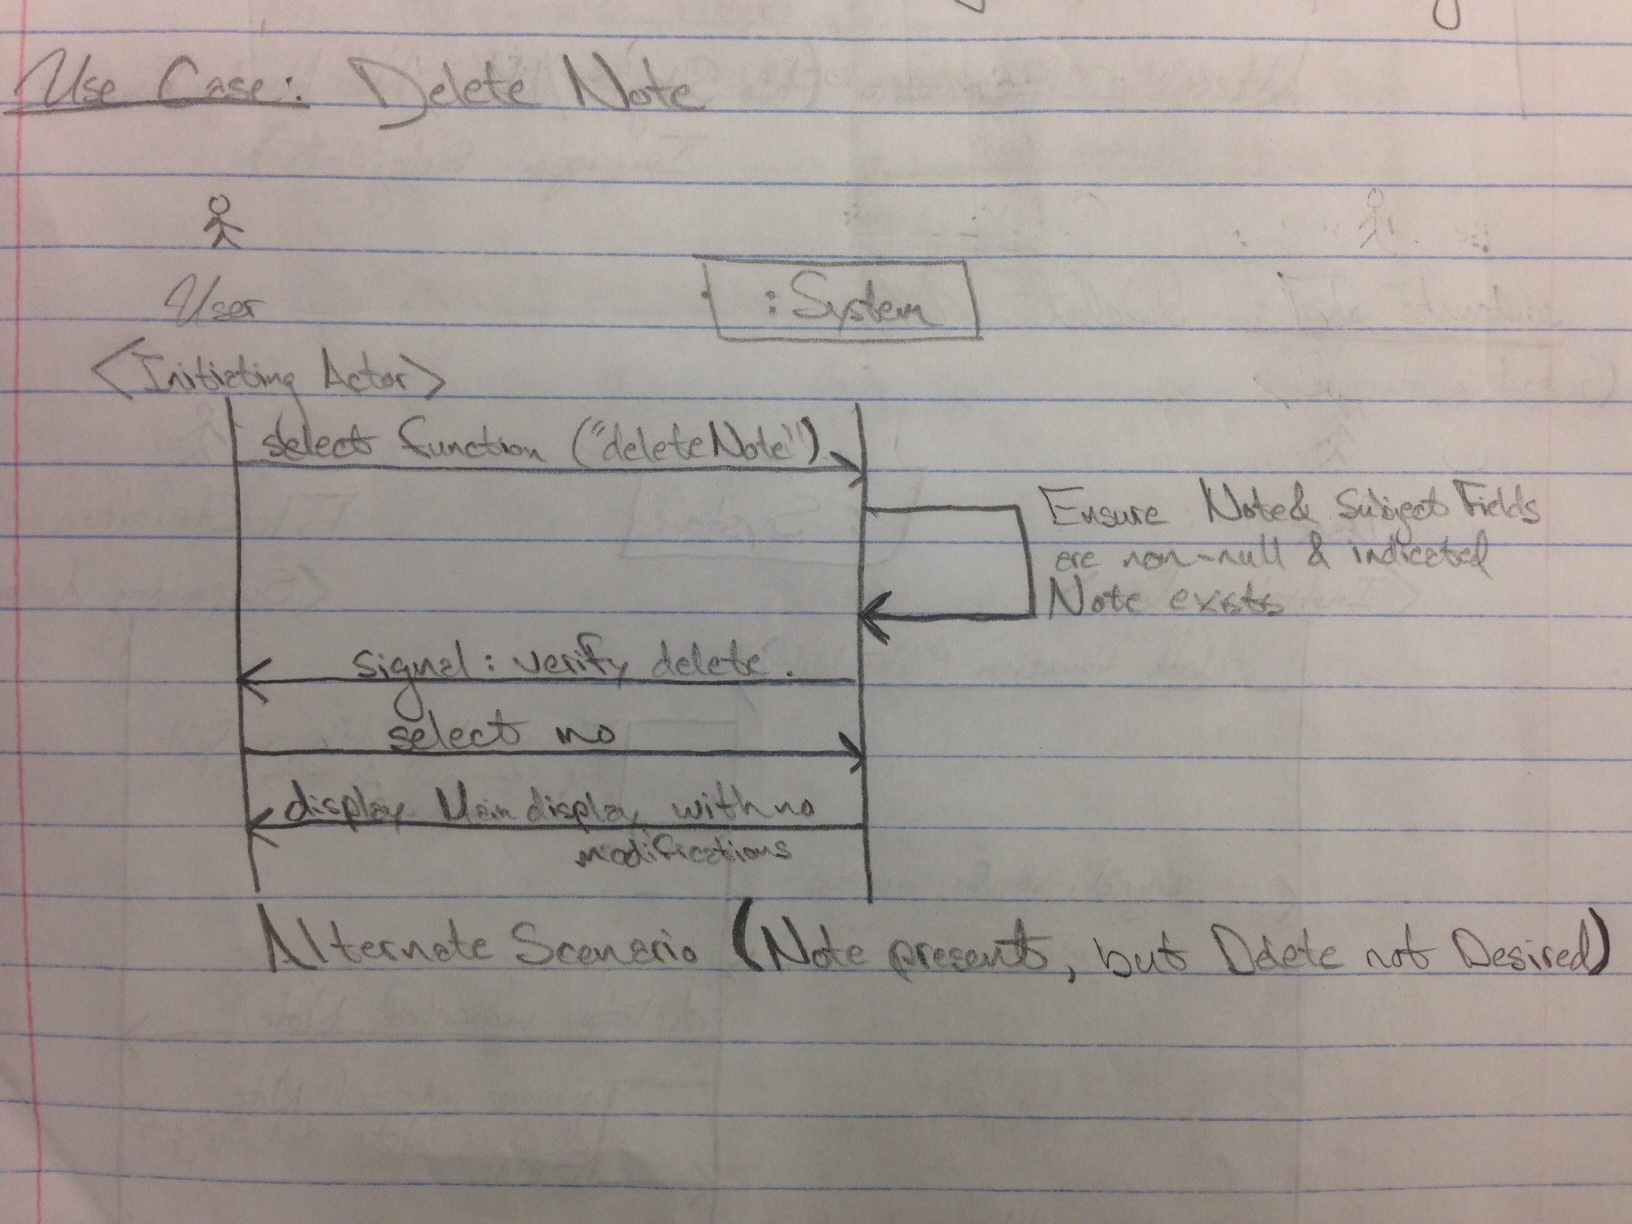 Use Case: Delete Note
User
:System
<Initiating Actor>
select function ("deleteNote")
Ensure Note & Subject Fields
are non-null & indicated
Note exists
signal: verify delete.
select no
display Main display with no
modifications
Alternate Scenario (Note present, but Delete not Desired)